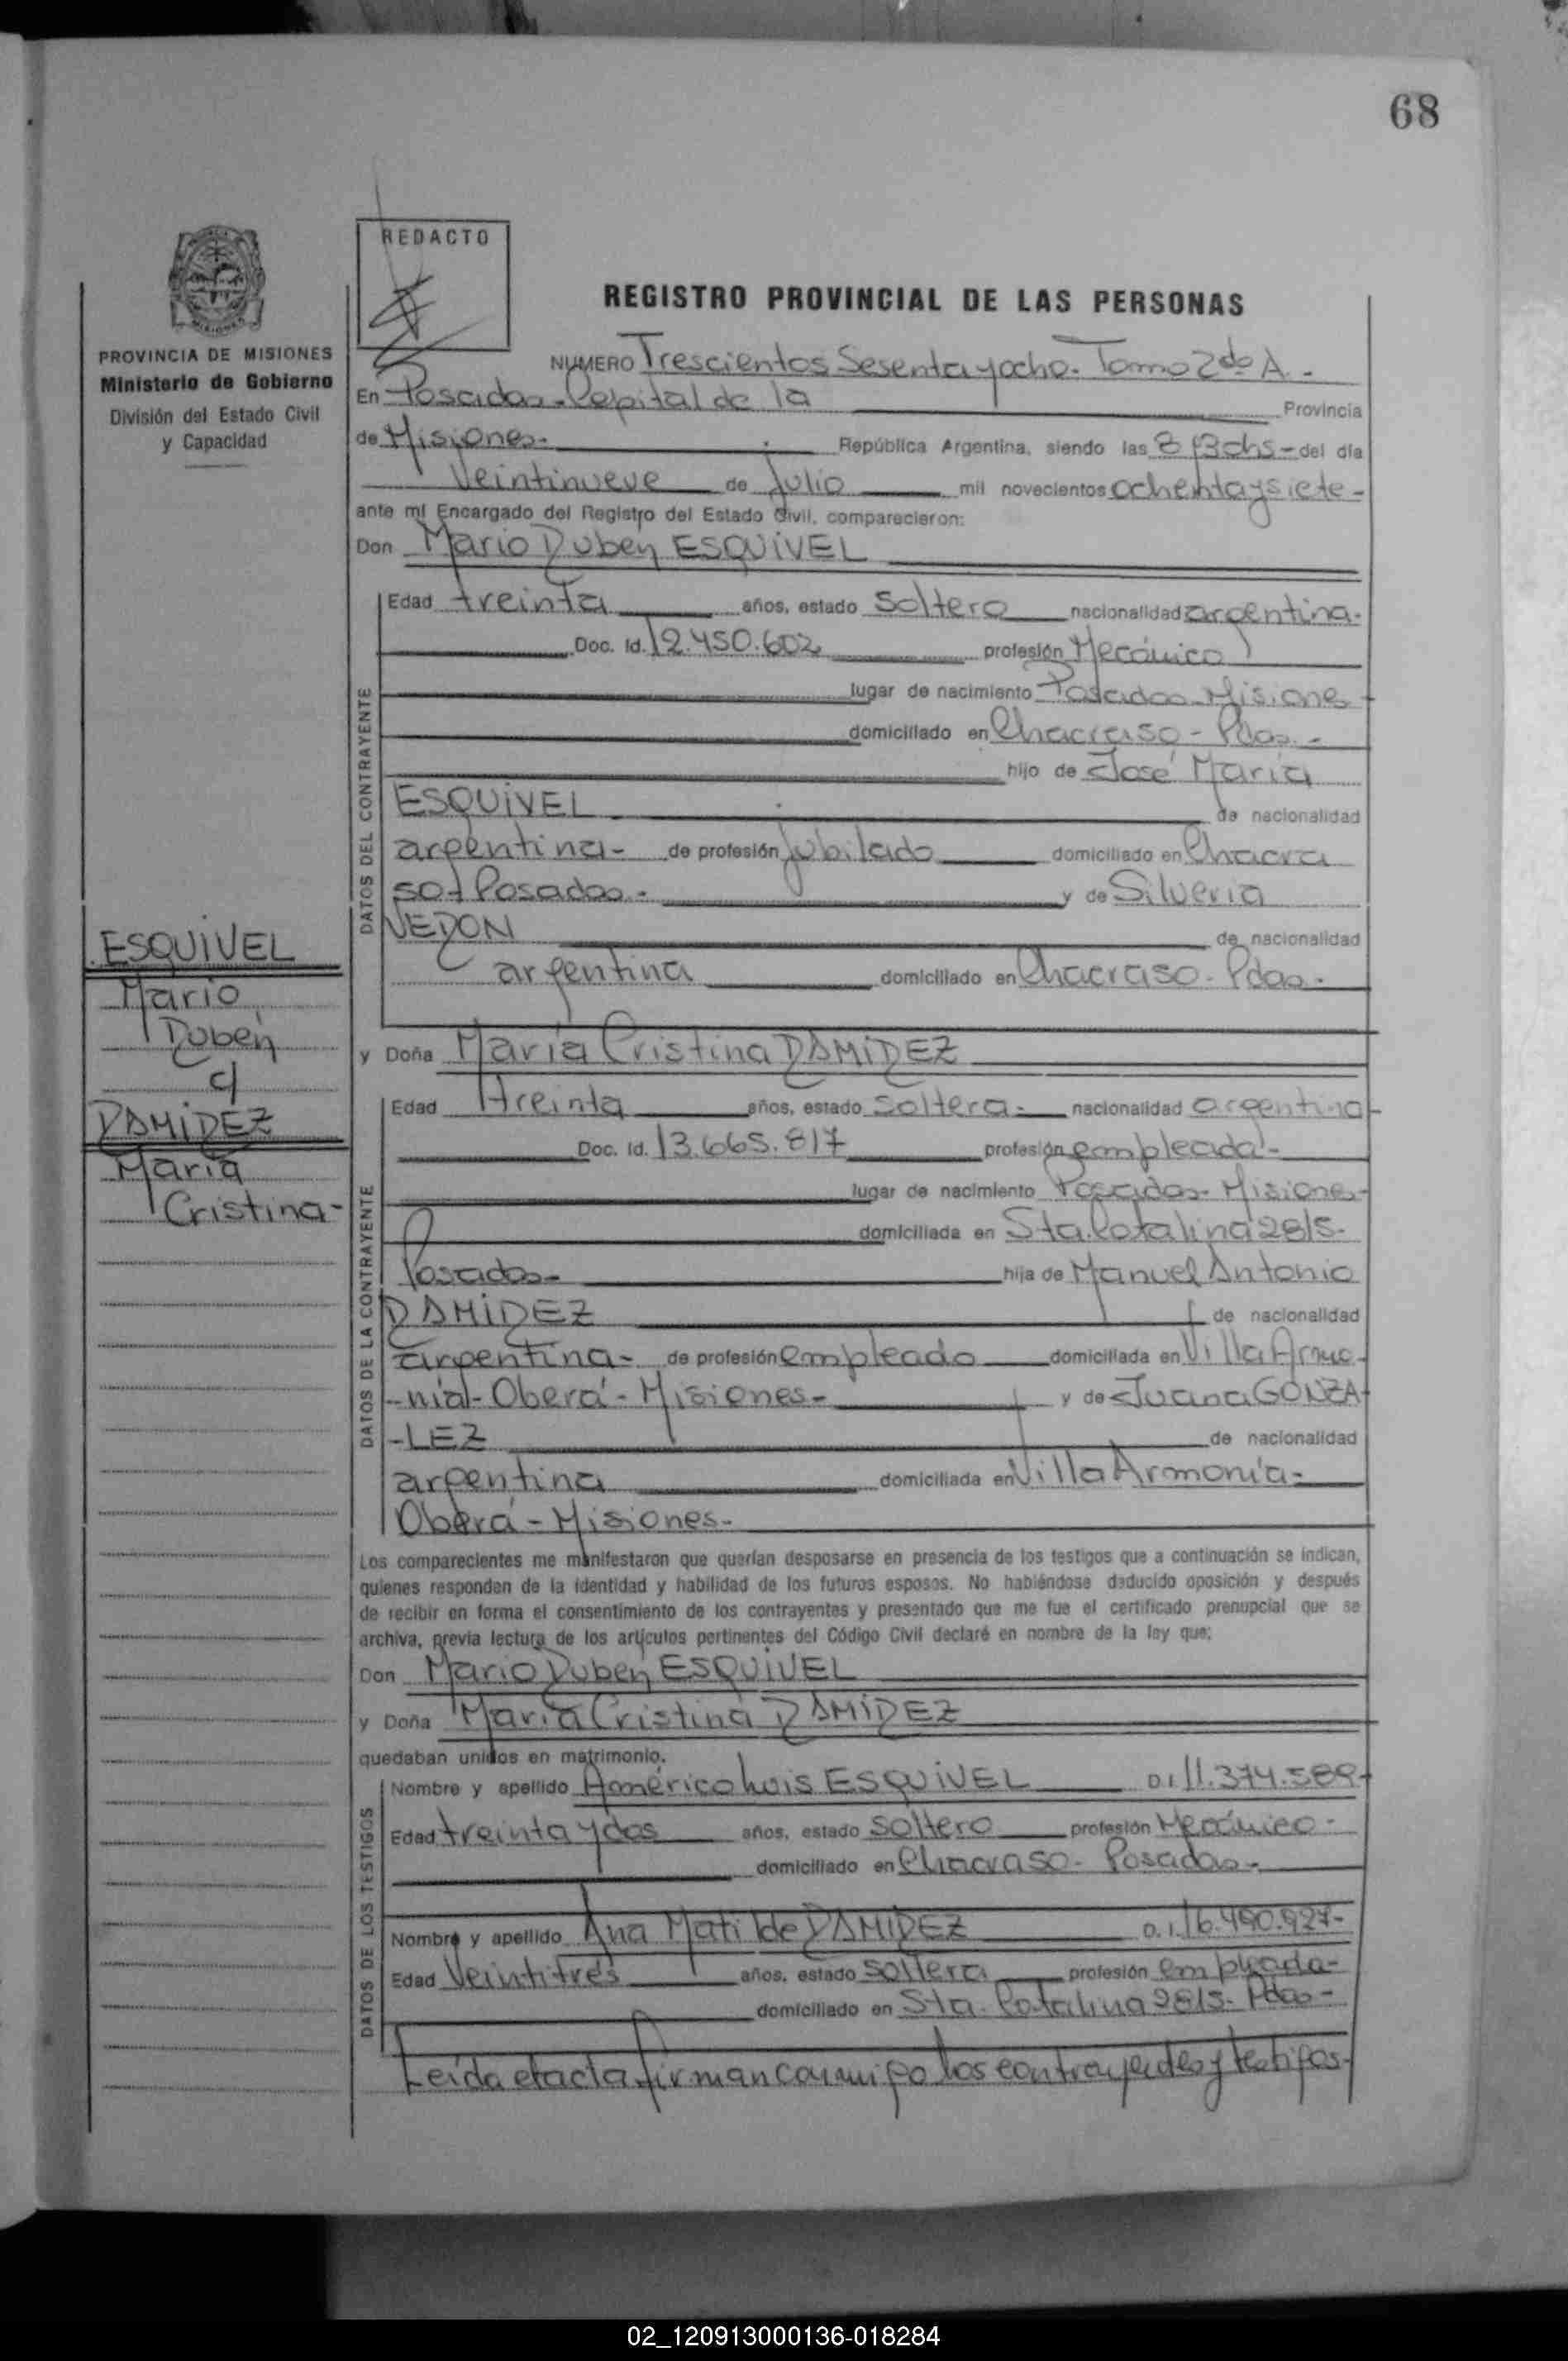 68
REDACTO
REGISTRO PROVINCIAL DE LAS PERSONAS
PROVINCIA DE MISIONES
Ministerio de Gobierno
División del Estado Civil
y Capacidad
NUMERO Trescientos Sesenta y ocho.- Tomo 2do A.-
En Posadas - Capital de la Provincia
de Misiones.- República Argentina, siendo las 8 y 30hs - del día
Veintinueve de Julio mil novecientos ochenta y siete -
ante mí Encargado del Registro del Estado Civil, comparecieron:
Don Mario Ruben ESQUIVEL
DATOS DEL CONTRAYENTE
Edad treinta años, estado soltero nacionalidad argentina.
Doc. Id. 12.450.602 profesión Mecánico
lugar de nacimiento Posadas - Misiones
domiciliado en Chacra 50 - Pdas. -
hijo de José María
ESQUIVEL de nacionalidad
argentina - de profesión jubilado domiciliado en Chacra
50 - Posadas.- y de Silveria
de nacionalidad
argentina domiciliado en Chacra 50 - Pdas.-
ESQUIVEL
Mario
Ruben
c/
RAMIREZ
María
Cristina -
y Doña María Cristina RAMIREZ
DATOS DE LA CONTRAYENTE
Edad treinta años, estado soltera.- nacionalidad argentina -
Doc. Id. 13.665.817 profesión empleada -
lugar de nacimiento Posadas - Misiones -
domiciliada en Sta. Catalina 2815-
Posadas - hija de Manuel Antonio
RAMIREZ de nacionalidad
argentina - de profesión empleado domiciliada en Villa Armo-
-nía - Oberá - Misiones - y de Juana GONZA-
-LEZ de nacionalidad
argentina domiciliada en Villa Armonía -
Oberá - Misiones -
Los comparecientes me manifestaron que querían desposarse en presencia de los testigos que a continuación se indican,
quienes responden de la identidad y habilidad de los futuros esposos. No habiéndose deducido oposición y después
de recibir en forma el consentimiento de los contrayentes y presentado que me fue el certificado prenupcial que se
archiva, previa lectura de los artículos pertinentes del Código Civil declaré en nombre de la ley que:
Don Mario Ruben ESQUIVEL
y Doña María Cristina RAMIREZ
quedaban unidos en matrimonio.
DATOS DE LOS TESTIGOS
Nombre y apellido Américo Luis ESQUIVEL D.I. 11.374.589-
Edad treinta y dos años, estado soltero profesión Mecánico -
domiciliado en Chacra 50 - Posadas -
Nombre y apellido Ana Matilde RAMIREZ D.I. 16.490.927-
Edad Veintitrés años, estado soltera profesión empleada -
domiciliado en Sta. Catalina 2815- Pdas -
Leída el acta firman conmigo los contrayentes y testigos-
02_120913000136-018284